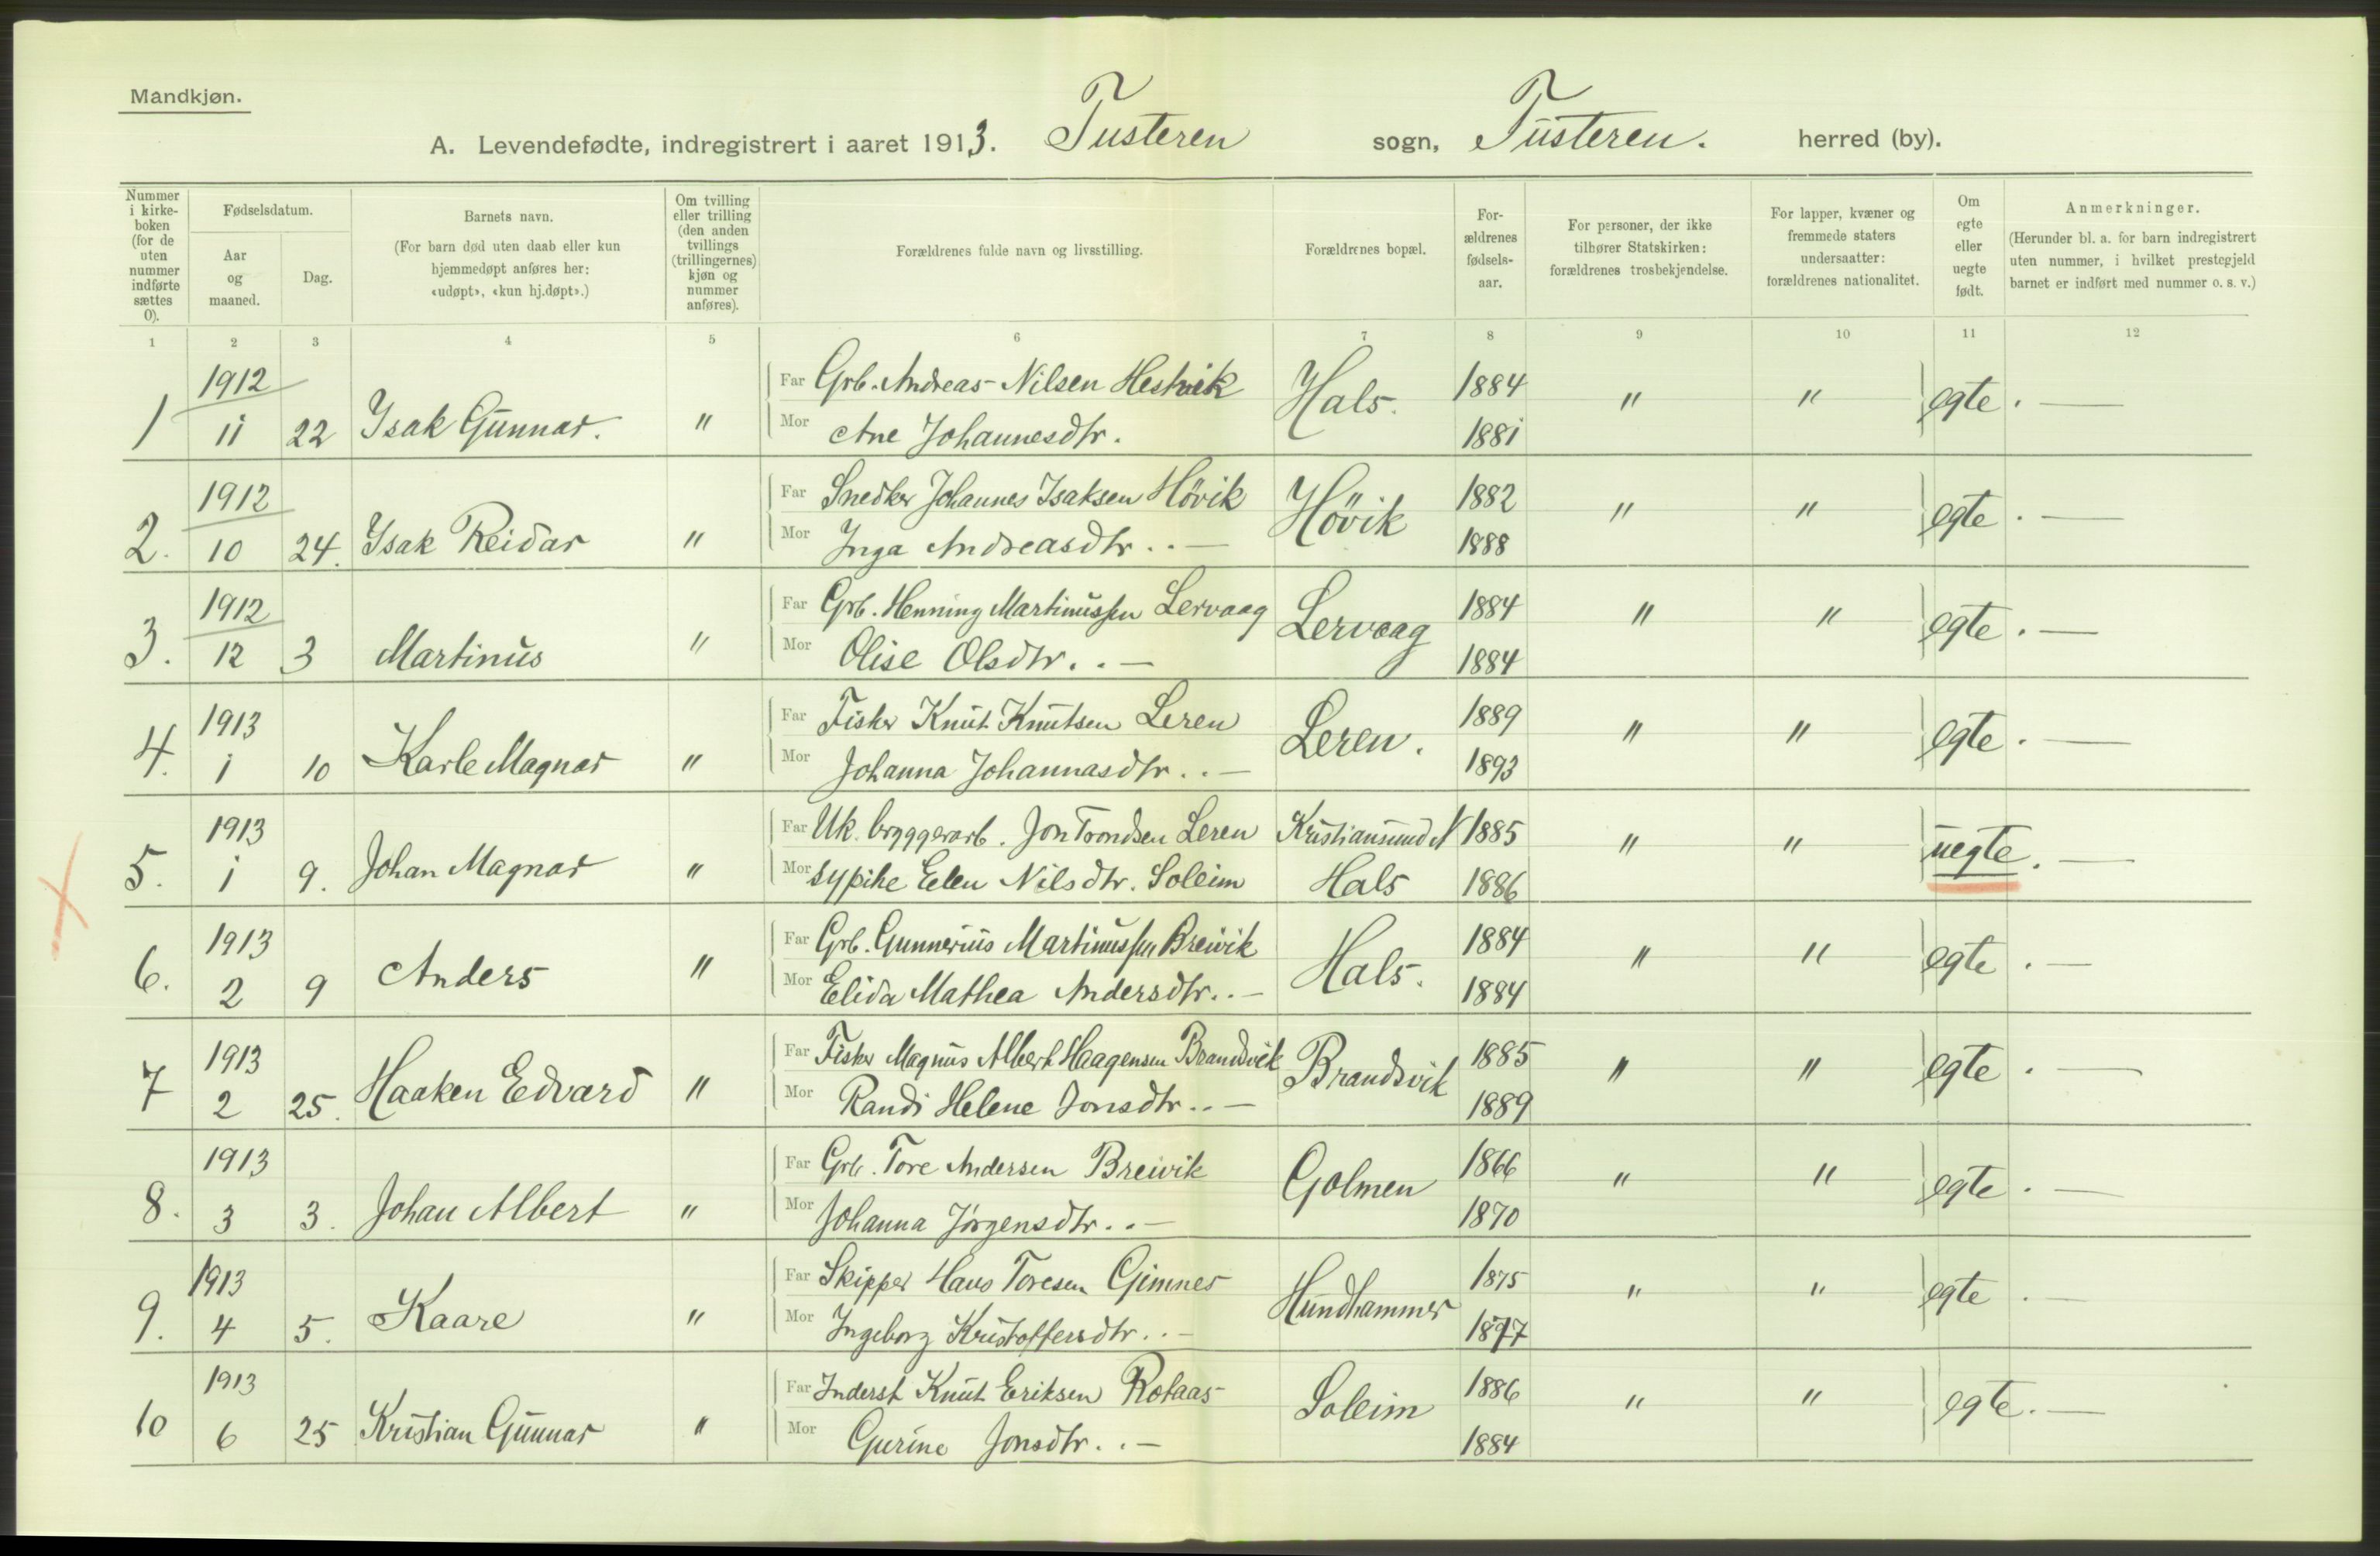 Mandkjøn.
A. Levendefødte, indregistrert i aaret 1913. Tusteren sogn, Tusteren. herred (by).
Nummer i kirke- boken (for de uten nummer indførte sættes 0).
Fødselsdatum.
Aar og maaned.
Dag.
Barnets navn.
(For barn død uten daab eller kun hjemmedøpt anføres her: «udøpt», «kun hj.døpt».)
Om tvilling eller trilling (den anden tvillings (trillingernes) kjøn og nummer anføres).
Forældrenes fulde navn og livsstilling.
Forældrenes bopæl.
For- ældrenes fødsels- aar.
For personer, der ikke tilhører Statskirken: forældrenes trosbekjendelse.
For lapper, kvæner og fremmede staters undersaatter: forældrenes nationalitet.
Om egte eller uegte født.
Anmerkninger.
(Herunder bl. a. for barn indregistrert uten nummer, i hvilket prestegjeld barnet er indført med nummer o. s. v.)
1 2 3 4 5 6 7 8 9 10 11 12
1912 Far Grb. Andreas Nilsen Hestvik Hals. 1884 " " egte. —
1 11 22 Isak Gunnar. " Mor Ane Johannesdtr. 1881
1912 Far Snedker Johannes Isaksen Hövik Hövik 1882 " " egte. —
2. 10 24. Isak Reidar " Mor Inga Andreasdtr. . — 1888
1912 Far Grb. Henning Martinussen Lervaag Lervaag 1884 " " egte. —
3. 12 3 Martinus " Mor Olise Olsdtr. . — 1884
1913 Far Fisker Knut Knutsen Leren Leren. 1889 " " egte. —
4. 1 10 Karle Magnar " Mor Johanna Johannasdtr. . — 1893
1913 Far Uk. bryggerarb. Jon Trondsen Leren Kristiansund N 1885 " " uegte. —
5. 1 9. Johan Magnar " Mor sypike Elen Nilsdtr. Soleim Hals 1886
1913 Far Grb. Gunnerius Martinussen Breivik Hals. 1884 " " egte. —
6. 2 9 Anders " Mor Elida Mathea Andersdtr. . — 1884
1913 Far Fisker Magnus Albert Haagensen Brandsvik Brandsvik 1885 " " egte. —
7 2 25. Haaken Edvard " Mor Randi Helene Jonsdtr. . — 1889
1913 Far Grb. Tore Andersen Breivik Golmen 1866 " " egte. —
8. 3 3. Johan Albert " Mor Johanna Jörgensdtr. . — 1870
1913 Far Skipper Hans Toresen Gimnes Hundhammer 1875 " " egte. —
9. 4 5. Kaare " Mor Ingeborg Kristoffersdtr. . — 1877
1913 Far Inderst Knut Eriksen Rotaas Soleim 1886 " " egte. —
10 6 25 Kristian Gunnar " Mor Gurine Jonsdtr. . — 1884